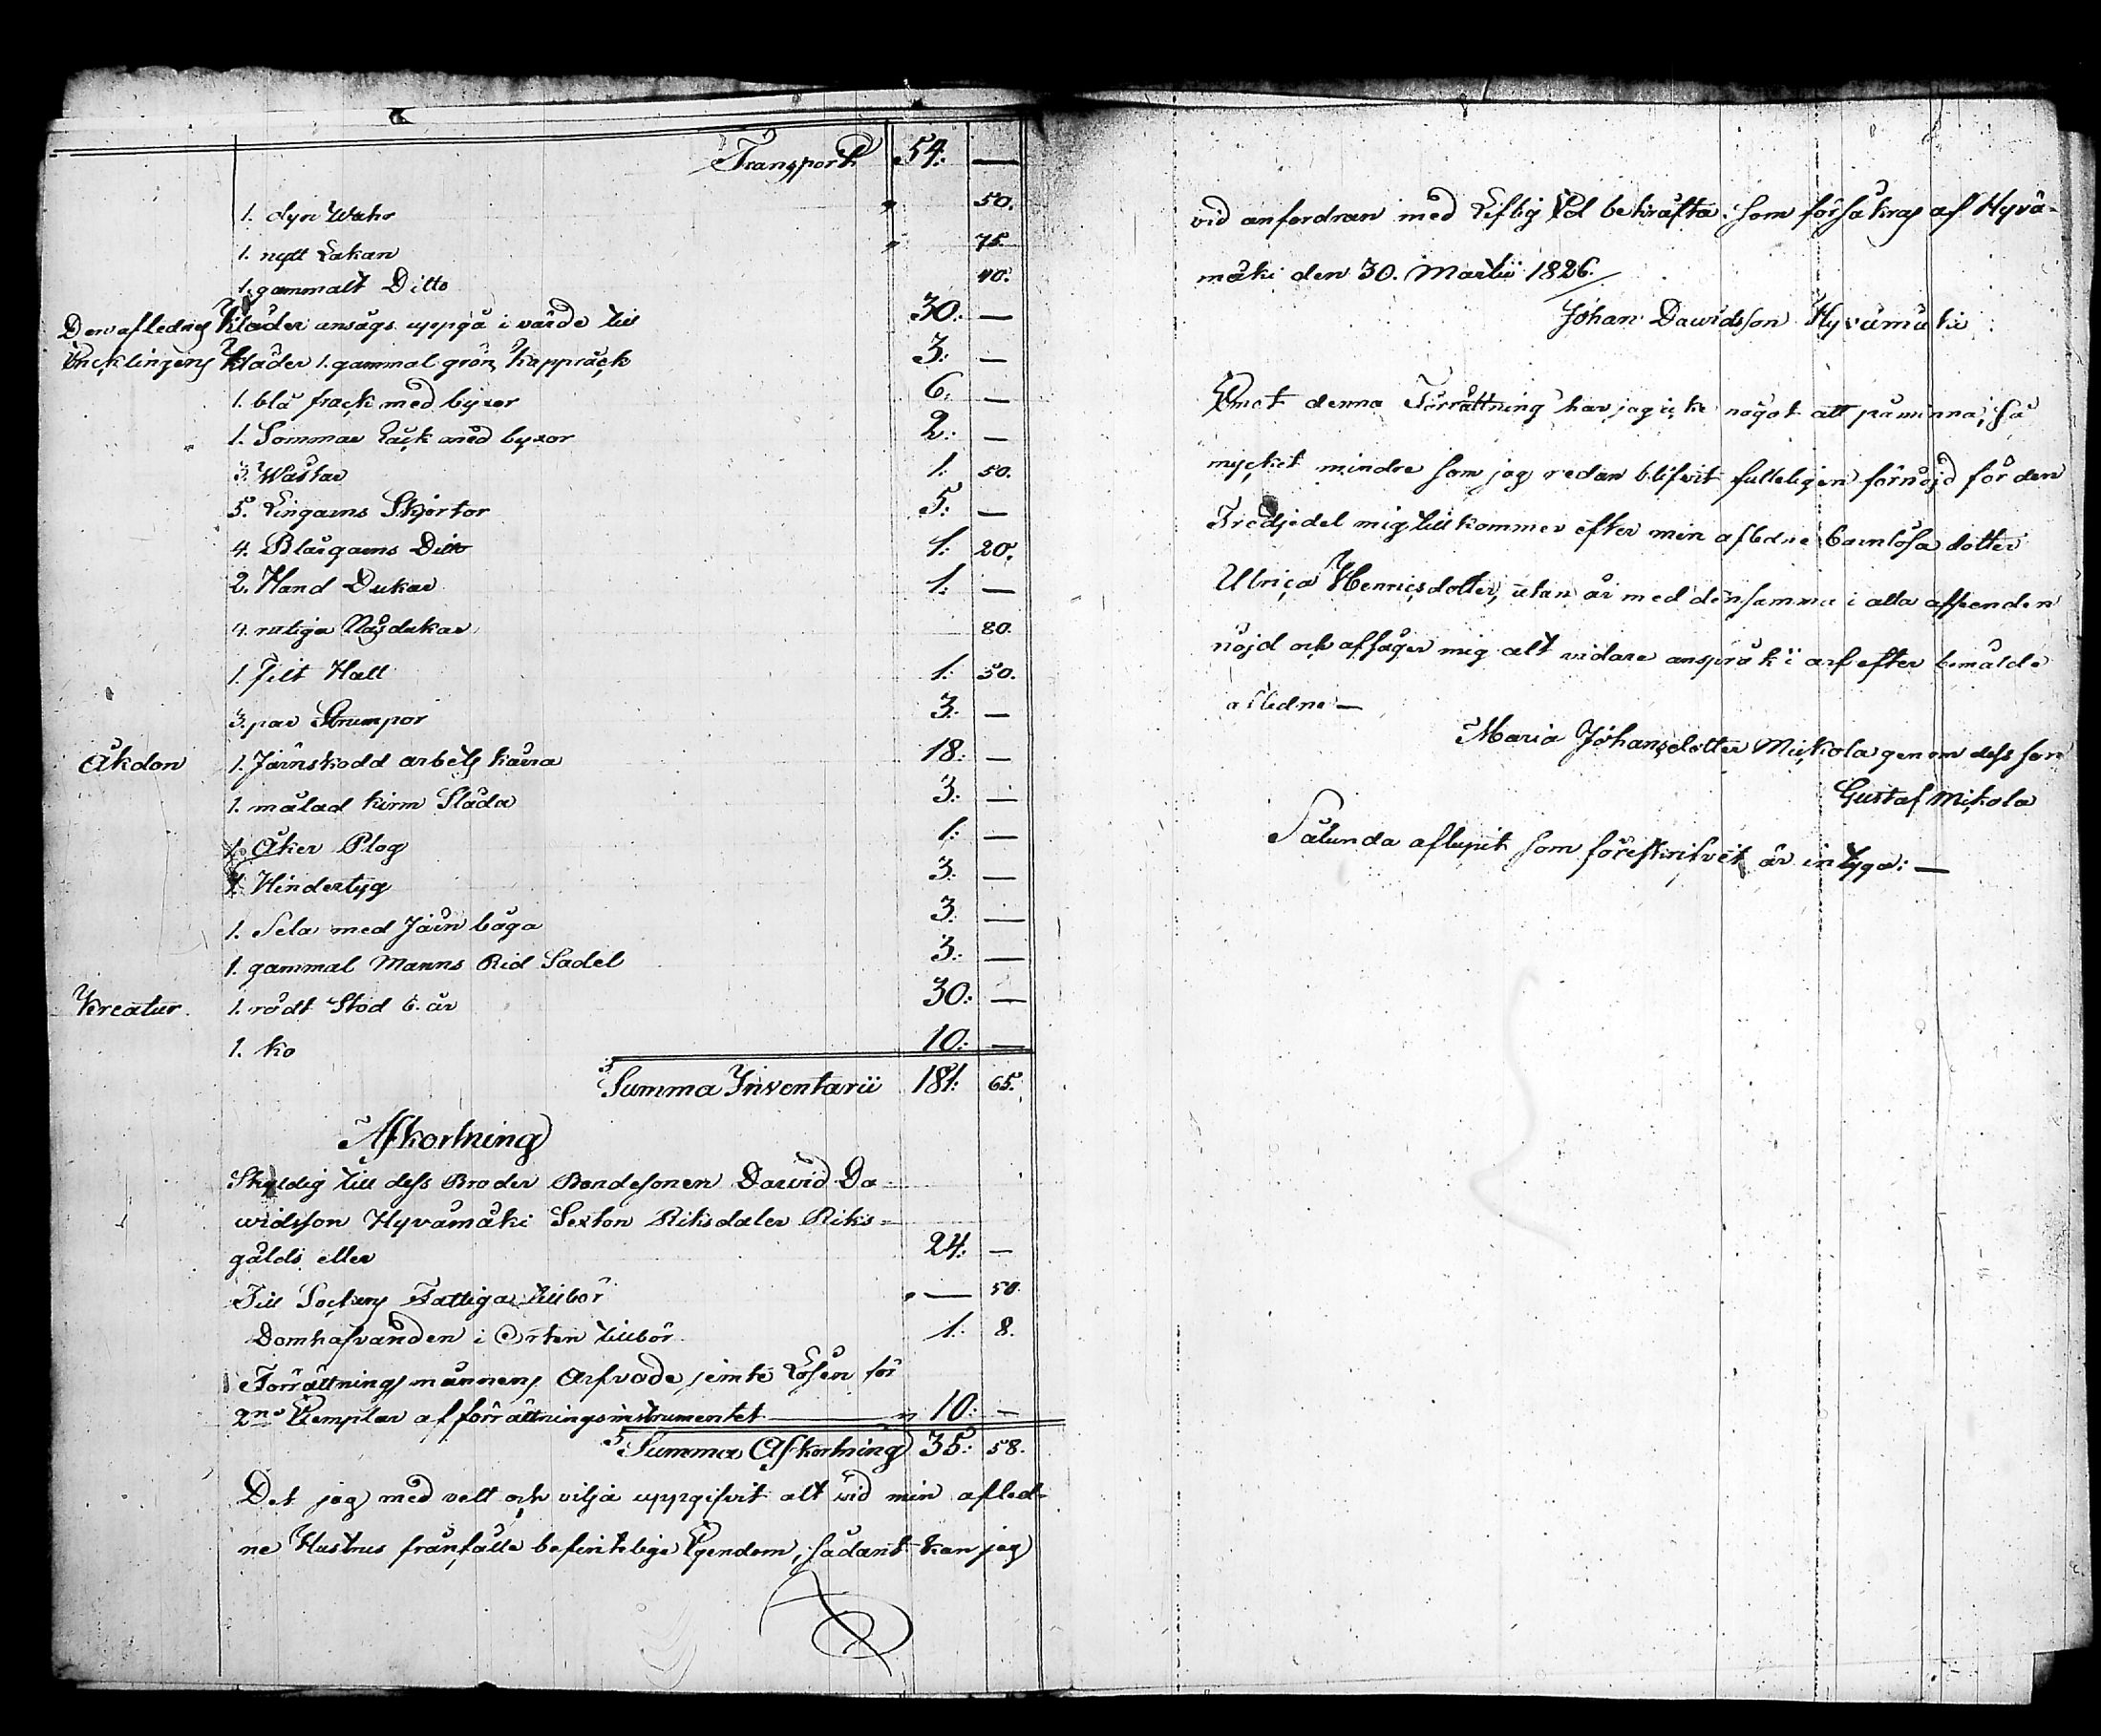 Transport 54: —
1. dyn Wahr " 50.
1. nytt Lakan " 75.
1. gammalt Ditto 40.
Den aflednes Kläder ansågs uppgå i värde till 30: —
Encklingens Kläder 1. gammal grön Kappråck 3: —
1. blå frack med byxor 6. —
1. Sommar Råck med byxor 2: —
3. Wästar 1. 50.
5. Lingarns Skjortor 5: —
4. Blårgarns Ditto 1: 20.
2. Hand Dukar 1: —
4. rutiga Näsdukar 80.
1. Filt Hatt 1. 50.
3. par Strumpor 3. —
Åkdon 1. Järnskodd arbets kärra 18: —
1. målad kirm Släda 3: —
1. Åker Plog 1: —
1. Hindertyg 3. —
1. Sela med Järn båga 3. —
1. gammal Manns Rid Sadel 3: —
Kreatur. 1. rödt Stod 6. år 30: —
1. ko 10: —
Summa Inventarii 181: 65.
Afkortning
Skyldig till dess Broder Bondesonen David Da-
widsson Hyvämäki Sexton Riksdaler Riks=
gälds eller 24: —
Till Sockens Fattiga tillbör " — 50.
Domhafvanden i Orten tillbör 1: 8.
Förrättningsmännens Arfvode jemte Lösen för
2ne Exemplar af förrättningsinstrumentet — " 10: —
Summa Afkortning 35: 58.
Det jag med vett och vilja uppgifvit alt vid min afled-
ne Hustrus frånfälle befinteliga Egendom, sådant kan jag
vid anfordran med Liflig Ed bekräfta. Som försäkras af Hyvä-
mäki den 30. Martii 1826.
Johan Dawidsson Hyvämäki
Emot denna Förrättning har jag icke något att påminna, så
mycket mindre som jag redan blifvit fulleligen förnöjd för den
Tredjedel mig tillkommer efter min afledne barnlösa dotter
Ulrica Henricsdotter, utan är med densamma i alla afseenden
nöjd och afsäger mig alt vidare anspråk i arf efter bemälde
afledne —
Maria Johansdotter Mickola genom dess son
Gustaf Mickola
Sålunda aflupit som föreskrifvit är intyga: —